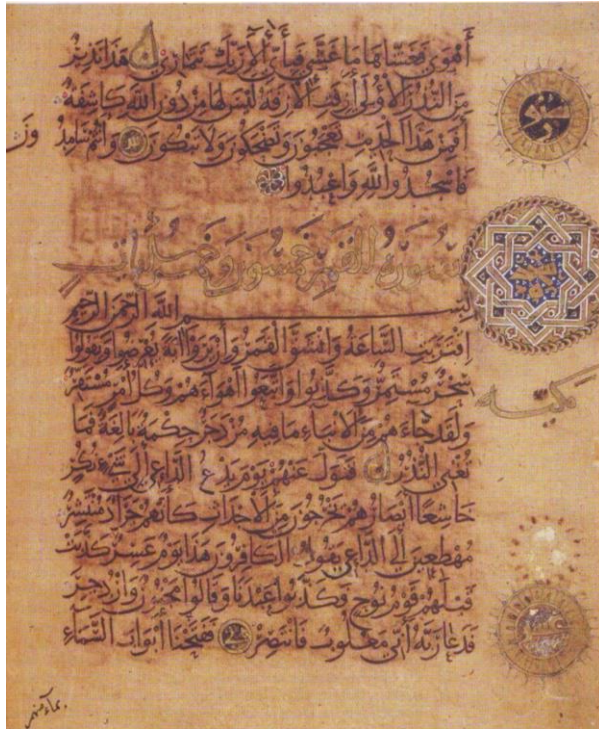 أَهْوَى فَغَشَّاهَا مَا غَشَّى فَبِأَيِّ آلَاءِ رَبِّكَ تَتَمَارَى هَذَا نَذِيرٌ
مِنَ النُّذُرِ الْأُولَى أَزِفَتِ الْآزِفَةُ لَيْسَ لَهَا مِنْ دُونِ اللَّهِ كَاشِفَةٌ
أَفَمِنْ هَذَا الْحَدِيثِ تَعْجَبُونَ وَتَضْحَكُونَ وَلَا تَبْكُونَ وَأَنْتُمْ سَامِدُونَ
فَاسْجُدُوا لِلَّهِ وَاعْبُدُوا
سورة القمر خمسون وخمس آيات
بسم الله الرحمن الرحيم
اقْتَرَبَتِ السَّاعَةُ وَانْشَقَّ الْقَمَرُ وَإِنْ يَرَوْا آيَةً يُعْرِضُوا وَيَقُولُوا
سِحْرٌ مُسْتَمِرٌّ وَكَذَّبُوا وَاتَّبَعُوا أَهْوَاءَهُمْ وَكُلُّ أَمْرٍ مُسْتَقِرٌّ
مكية
وَلَقَدْ جَاءَهُمْ مِنَ الْأَنْبَاءِ مَا فِيهِ مُزْدَجَرٌ حِكْمَةٌ بَالِغَةٌ فَمَا
تُغْنِ النُّذُرُ فَتَوَلَّ عَنْهُمْ يَوْمَ يَدْعُ الدَّاعِ إِلَى شَيْءٍ نُكُرٍ
خَاشِعًا أَبْصَارُهُمْ يَخْرُجُونَ مِنَ الْأَجْدَاثِ كَأَنَّهُمْ جَرَادٌ مُنْتَشِرٌ
مُهْطِعِينَ إِلَى الدَّاعِ يَقُولُ الْكَافِرُونَ هَذَا يَوْمٌ عَسِرٌ كَذَّبَتْ
قَبْلَهُمْ قَوْمُ نُوحٍ فَكَذَّبُوا عَبْدَنَا وَقَالُوا مَجْنُونٌ وَازْدُجِرَ
فَدَعَا رَبَّهُ أَنِّي مَغْلُوبٌ فَانْتَصِرْ فَفَتَحْنَا أَبْوَابَ السَّمَاءِ
بماء منهمر